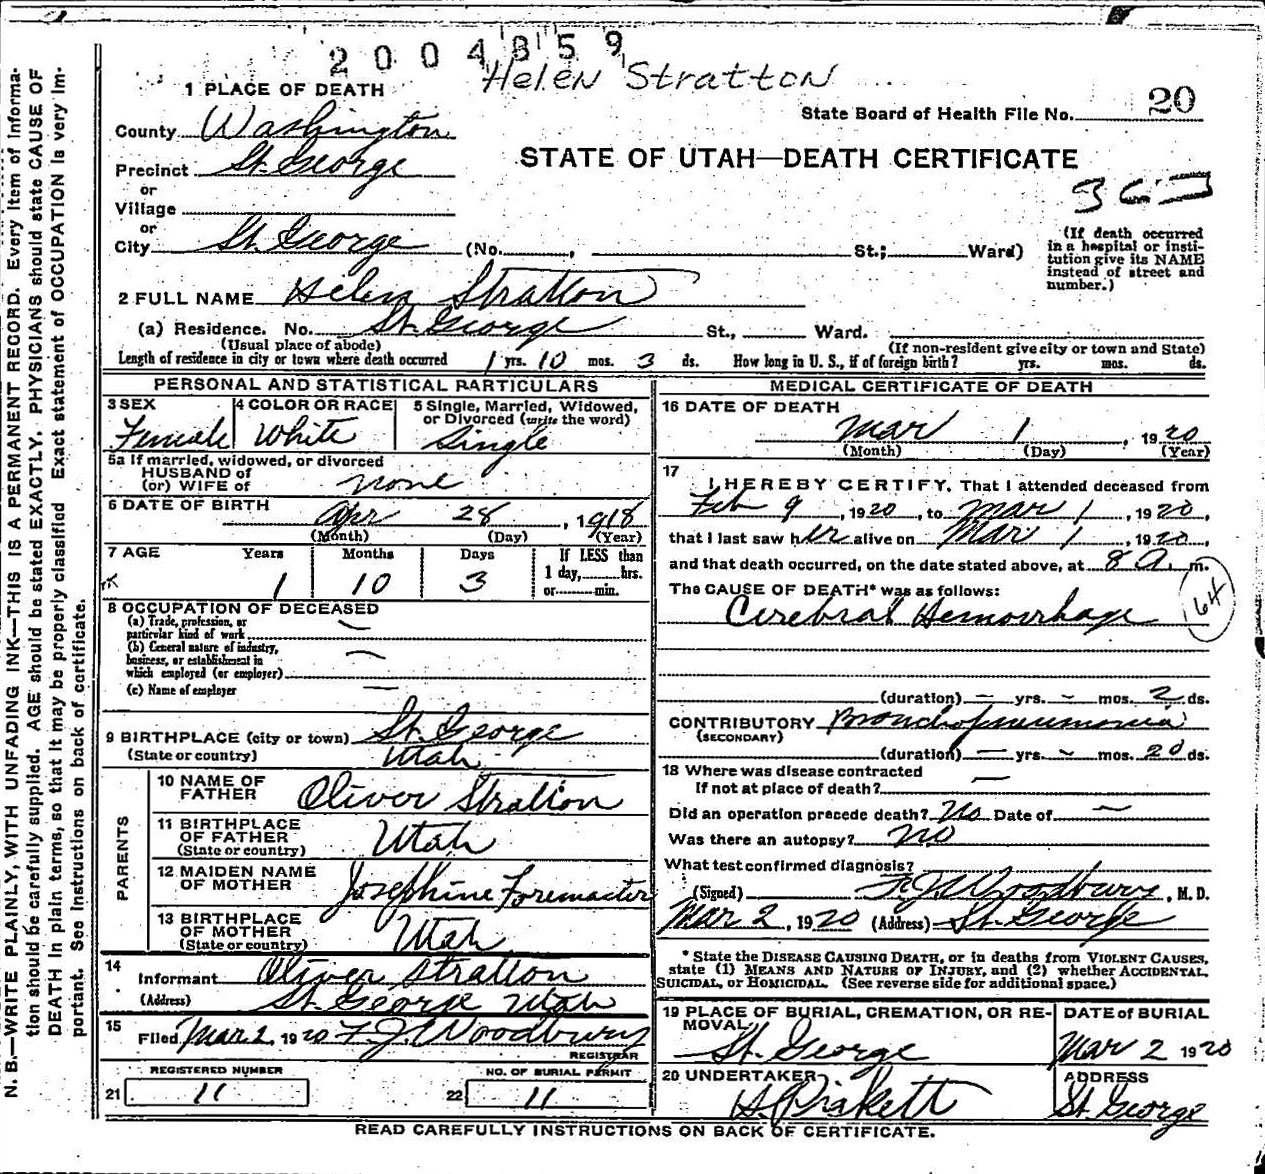 2004859
Helen Stratton
1 PLACE OF DEATH
State Board of Health File No. 20
County Washington
STATE OF UTAH—DEATH CERTIFICATE
Precinct St. George
or
Village
or
City St. George (No. , St.; Ward)
(If death occurred
in a hospital or insti-
tution give its NAME
instead of street and
number.)
2 FULL NAME Helen Stratton
(a) Residence. No. St. George St., Ward.
(Usual place of abode) (If non-resident give city or town and State)
Length of residence in city or town where death occurred 1 yrs. 10 mos. 3 ds. How long in U. S., if of foreign birth? yrs. mos. ds.
PERSONAL AND STATISTICAL PARTICULARS
3 SEX
Female
4 COLOR OR RACE
White
5 Single, Married, Widowed,
or Divorced (write the word)
Single
5a If married, widowed, or divorced
HUSBAND of
(or) WIFE of none
6 DATE OF BIRTH
Apr 28, 1918
(Month) (Day) (Year)
7 AGE Years Months Days If LESS than
1 day, hrs.
or min.
1 10 3
8 OCCUPATION OF DECEASED
(a) Trade, profession, or
particular kind of work —
(b) General nature of industry,
business, or establishment in
which employed (or employer) —
(c) Name of employer —
9 BIRTHPLACE (city or town) St. George
(State or country) Utah
PARENTS
10 NAME OF
FATHER Oliver Stratton
11 BIRTHPLACE
OF FATHER
(State or country) Utah
12 MAIDEN NAME
OF MOTHER Josephine Foremaster
13 BIRTHPLACE
OF MOTHER
(State or country) Utah
14
Informant Oliver Stratton
(Address) St. George Utah
15
Filed Mar 2, 1920 F. J. Woodbury
REGISTRAR
REGISTERED NUMBER
21 11
NO. OF BURIAL PERMIT
22 11
MEDICAL CERTIFICATE OF DEATH
16 DATE OF DEATH
Mar 1, 1920
(Month) (Day) (Year)
17
I HEREBY CERTIFY, That I attended deceased from
Feb 9, 1920, to Mar 1, 1920,
that I last saw her alive on Mar 1, 1920,
and that death occurred, on the date stated above, at 8 A. m.
The CAUSE OF DEATH* was as follows:
Cerebral Hemorrhage
64
(duration) — yrs. — mos. 2 ds.
CONTRIBUTORY Bronchopneumonia
(SECONDARY)
(duration) — yrs. — mos. 20 ds.
18 Where was disease contracted
If not at place of death? —
Did an operation precede death? No Date of —
Was there an autopsy? No
What test confirmed diagnosis?
(Signed) F. J. Woodbury, M. D.
Mar 2, 1920 (Address) St. George
* State the DISEASE CAUSING DEATH, or in deaths from VIOLENT CAUSES,
state (1) MEANS AND NATURE OF INJURY, and (2) whether ACCIDENTAL,
SUICIDAL, or HOMICIDAL. (See reverse side for additional space.)
19 PLACE OF BURIAL, CREMATION, OR RE-
MOVAL
St. George
DATE of BURIAL
Mar 2 1920
20 UNDERTAKER
ADDRESS
St. George
READ CAREFULLY INSTRUCTIONS ON BACK OF CERTIFICATE.
N. B.—WRITE PLAINLY, WITH UNFADING INK—THIS IS A PERMANENT RECORD. Every item of informa-
tion should be carefully supplied. AGE should be stated EXACTLY. PHYSICIANS should state CAUSE OF
DEATH in plain terms, so that it may be properly classified. Exact statement of OCCUPATION is very im-
portant. See instructions on back of certificate.